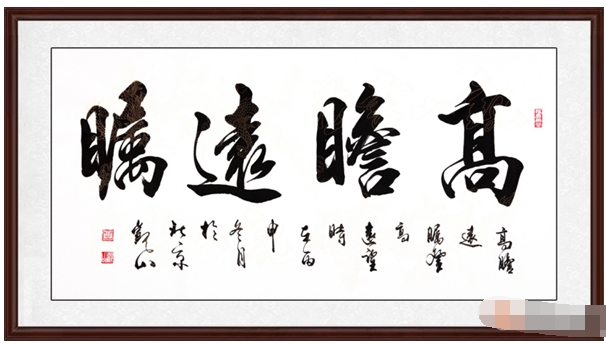 高瞻遠瞩
高瞻
遠
瞩登
高
遠望
時
在丙
申
冬月
於
北京